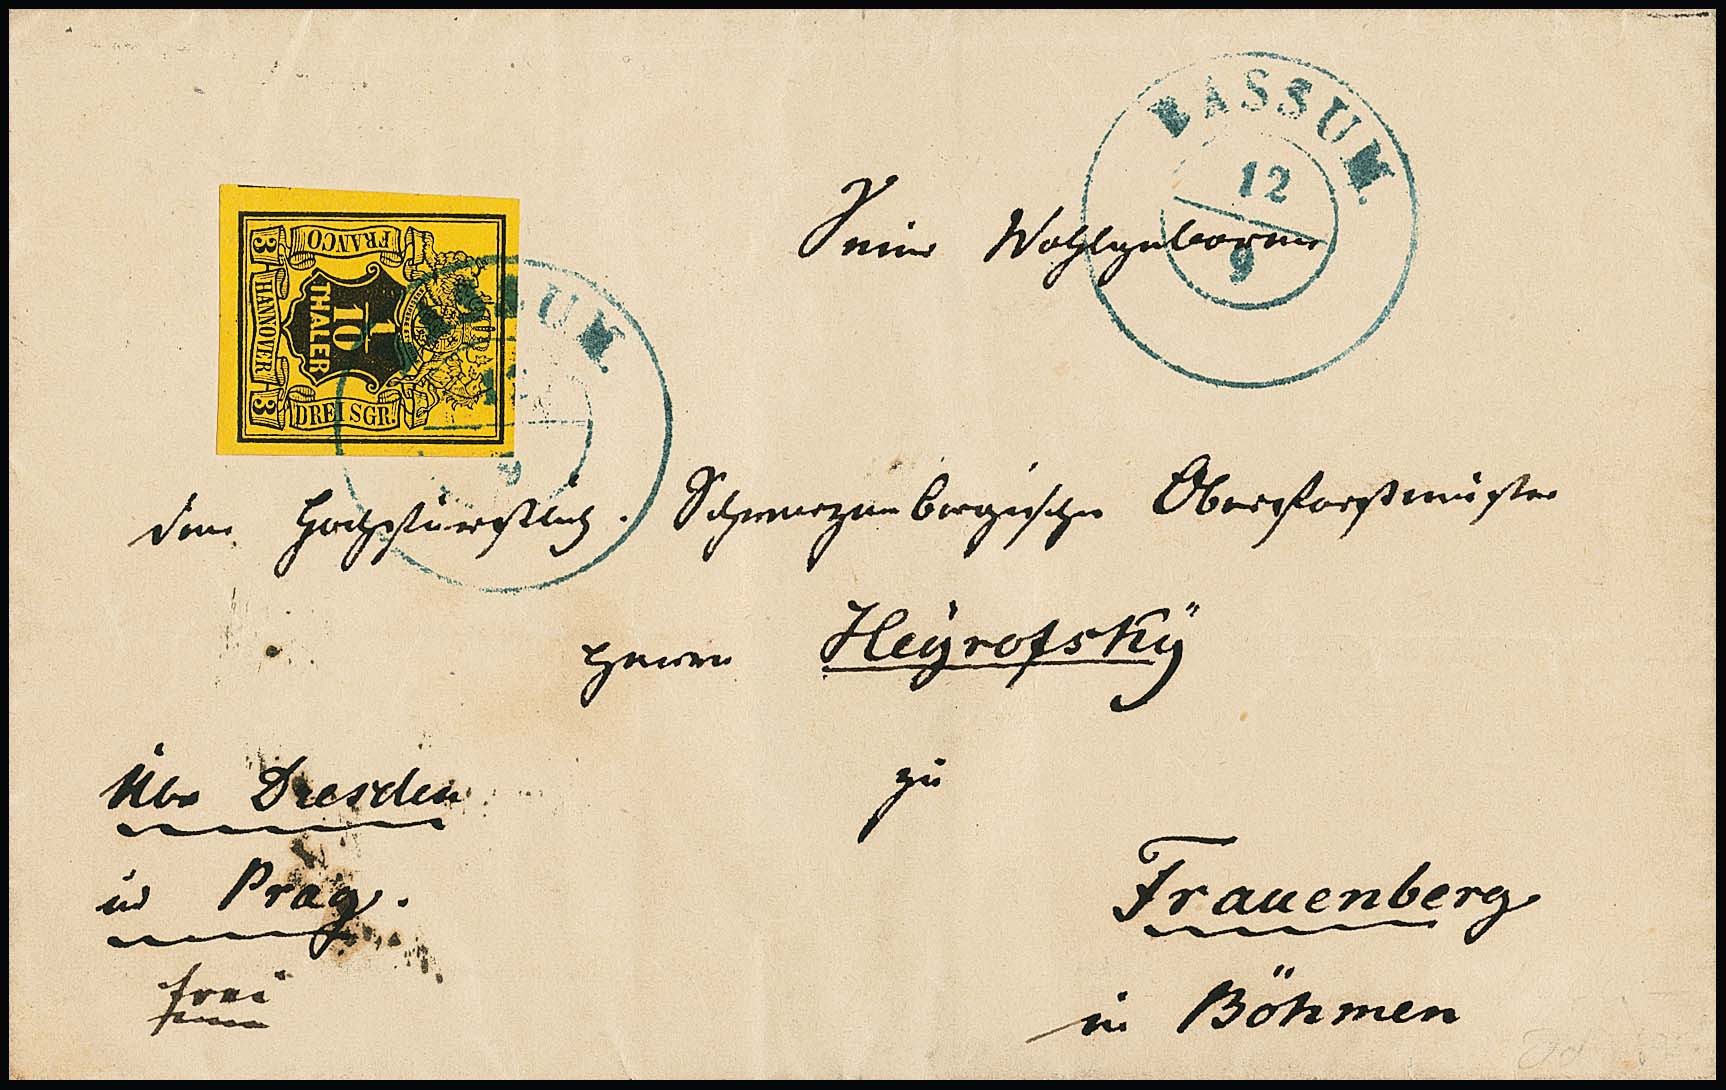 BASSUM.
12
9
Seiner Wohlgeboren
FRANCO
1/10
THALER
HANNOVER
3 3
DREI SGR.
BASSUM.
12
9
dem Hochfürstlich. Schwarzenbergischen Oberforstmeister
Herrn Heÿrofskÿ
zu
Über Dresden
u Prag.
frei
Frauenberg
in Böhmen